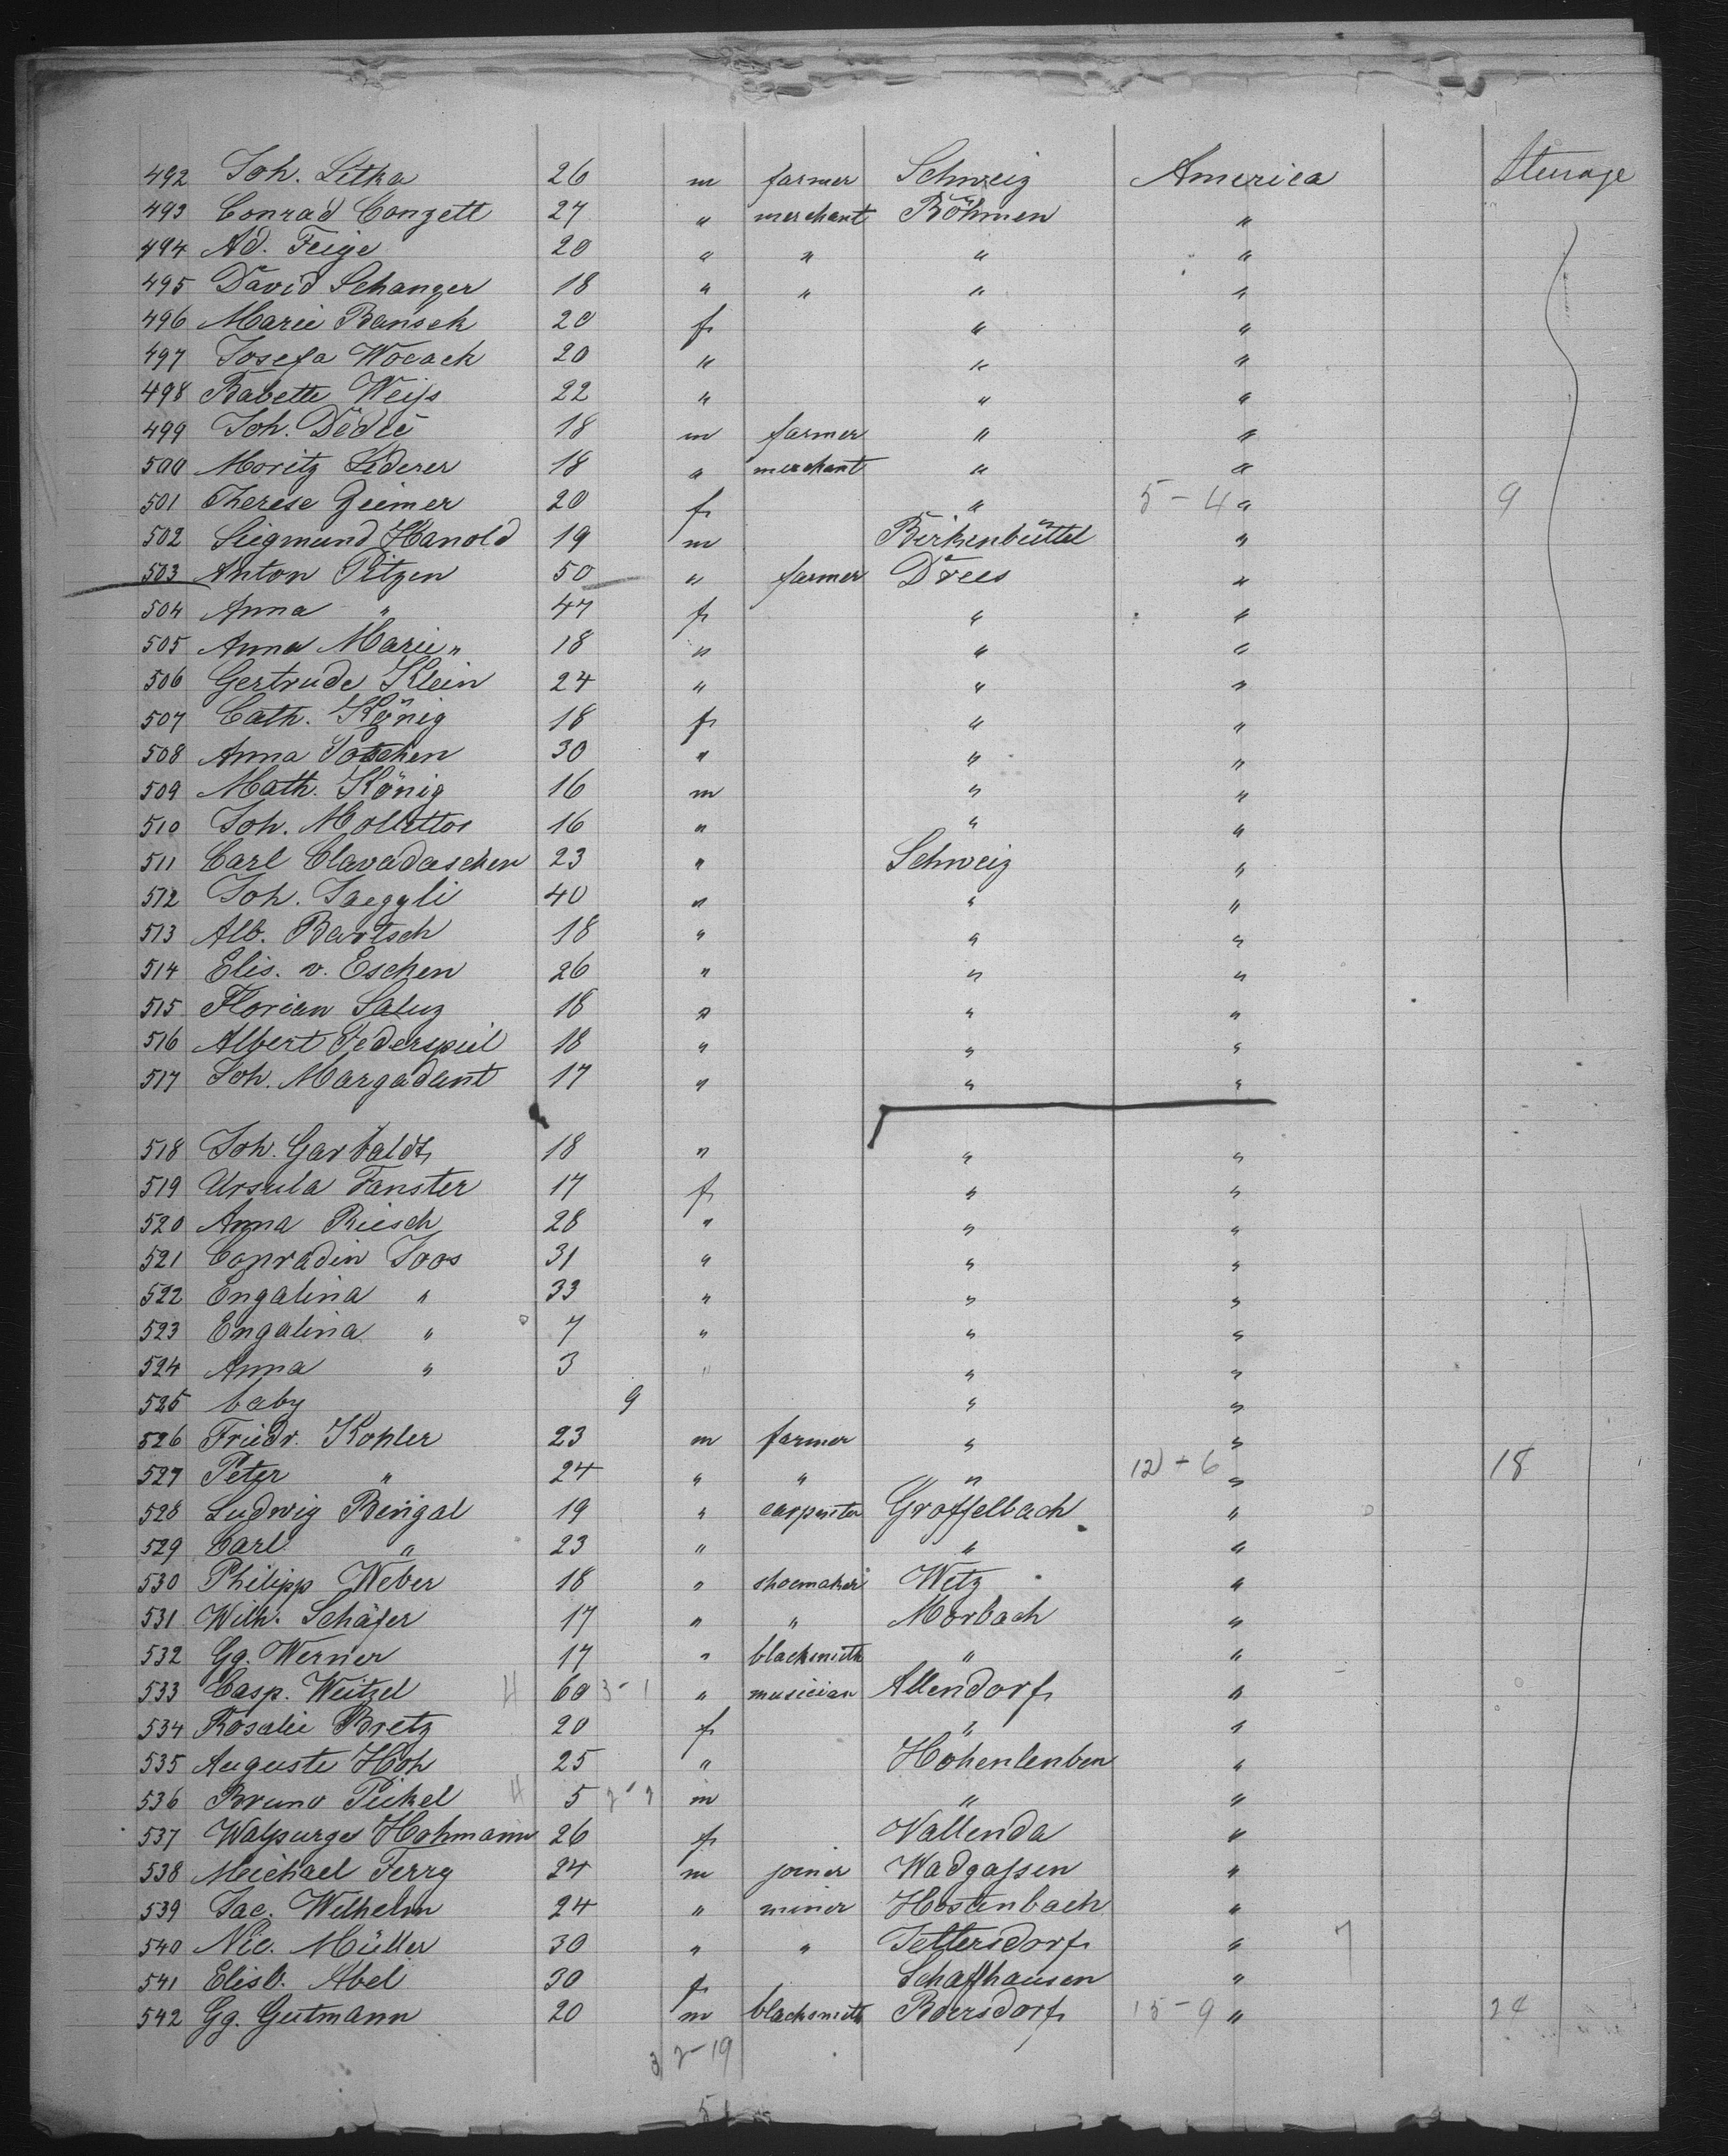 492 Joh. Litka 26 m farmer Schweiz America Sterage
493 Conrad Conzett 27 " merchant Böhmen "
494 Ad. Feige 20 " " " "
495 David Schanzer 18 " " " "
496 Marie Bansek 20 f " "
497 Josefa Wocack 20 " " "
498 Babette Weiss 22 " " "
499 Joh. Dĕdić 18 m farmer " "
500 Moritz Lederer 18 " merchant " "
501 Therese Geimer 20 f " 5-4 " 9
502 Siegmund Hanold 19 m Birkenbüttel "
503 Anton Pitzen 50 " farmer Drees "
504 Anna " 47 f " "
505 Anna Marie " 18 " " "
506 Gertrude Klein 24 " " "
507 Cath. König 18 f " "
508 Anna 30 " " "
509 Math. König 16 m " "
510 Joh. Molitor 16 " " "
511 Carl Clavadascher 23 " Schweiz "
512 Joh. Jaeggli 40 " " "
513 Alb. Bartsch 18 " " "
514 Elis. v. Eschen 26 " " "
515 Florian Saluz 18 " " "
516 Albert Federspiel 18 " " "
517 Joh. Margadant 17 " " "
518 Joh. Garbaldt 18 " " "
519 Ursula Fanster 17 f " "
520 Anna Riesch 28 " " "
521 Conradin Joos 31 " " "
522 Engalina " 33 " " "
523 Engalina " 7 " " "
524 Anna " 3 " " "
525 baby 9 " "
526 Friedr. Kohler 23 m farmer " "
527 Peter " 24 " " " 12-6 " 18
528 Ludwig Bengal 19 " carpenter Groffelbach "
529 Carl " 23 " " "
530 Philipp Weber 18 " shoemaker Wetz "
531 Wilh. Schäfer 17 " " Morbach "
532 Gg. Werner 17 " blacksmith " "
533 Casp. Weitzel 60 3-1 " musician Allendorf "
534 Rosalie Bretz 20 f " "
535 Auguste Hoh 25 " Hohenleuben "
536 Bruno Pickel 5 m " "
537 Walpurge Hohmann 26 f Vallenda "
538 Meichael Ferry 24 m joiner Wadgassen "
539 Jac. Wilhelm 24 " miner Hostenbach "
540 Nic. Müller 30 " " Tettersdorf " 7
541 Elisb. Abel 30 f Schaffhausen "
542 Gg. Gutmann 20 m blacksmith Boersdorf 15-9 " 24
32-19
51